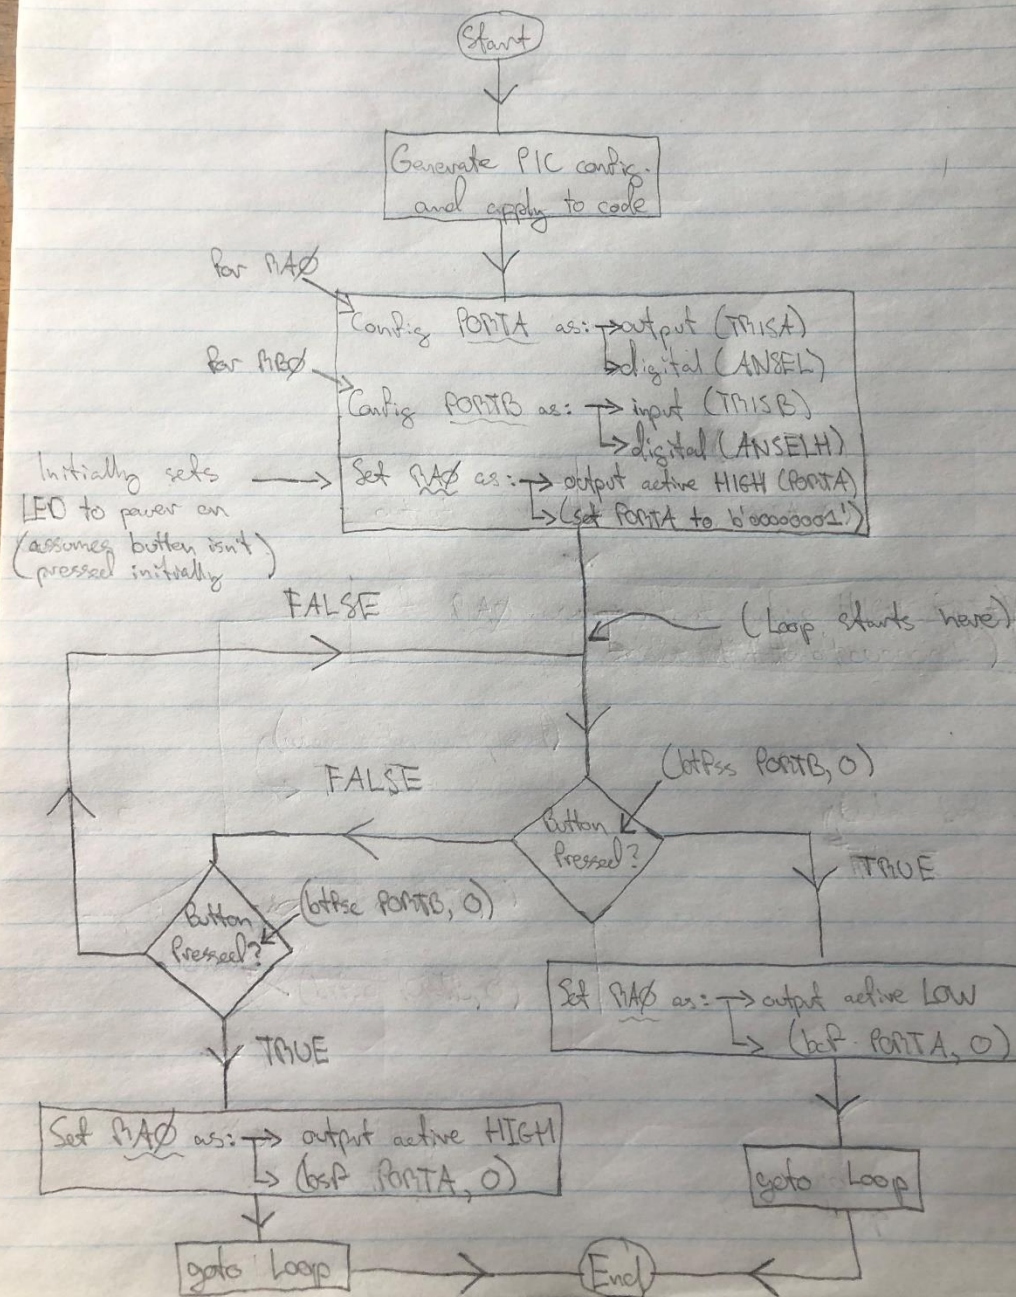 Start
Generate PIC config.
and apply to code
for RAØ
Config PORTA as: → output (TRISA)
↳ digital (ANSEL)
for RBØ
Config PORTB as: → input (TRISB)
↳ digital (ANSELH)
Initially sets
LED to power on
(assumes button isn't
pressed initially)
Set RAØ as: → output active HIGH (PORTA)
↳ (set PORTA to b'00000001')
FALSE
(Loop starts here)
(btfss PORTB, 0)
FALSE
Button
Pressed?
TRUE
(btfsc PORTB, 0)
Button
Pressed?
Set RAØ as: → output active LOW
↳ (bcf PORTA, 0)
TRUE
Set RAØ as: → output active HIGH
↳ (bsf PORTA, 0)
goto Loop
goto Loop
End